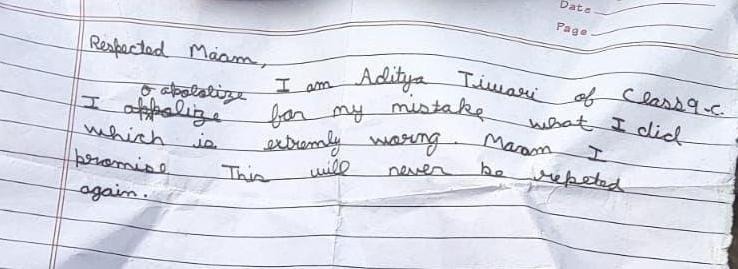 Date
Page
Respected Maam,
apololize I am Aditya Tiwari of Class 9-c.
I appalize for my mistake what I did
which is extremly worng. Maam I
promise This will never be repeted
again.